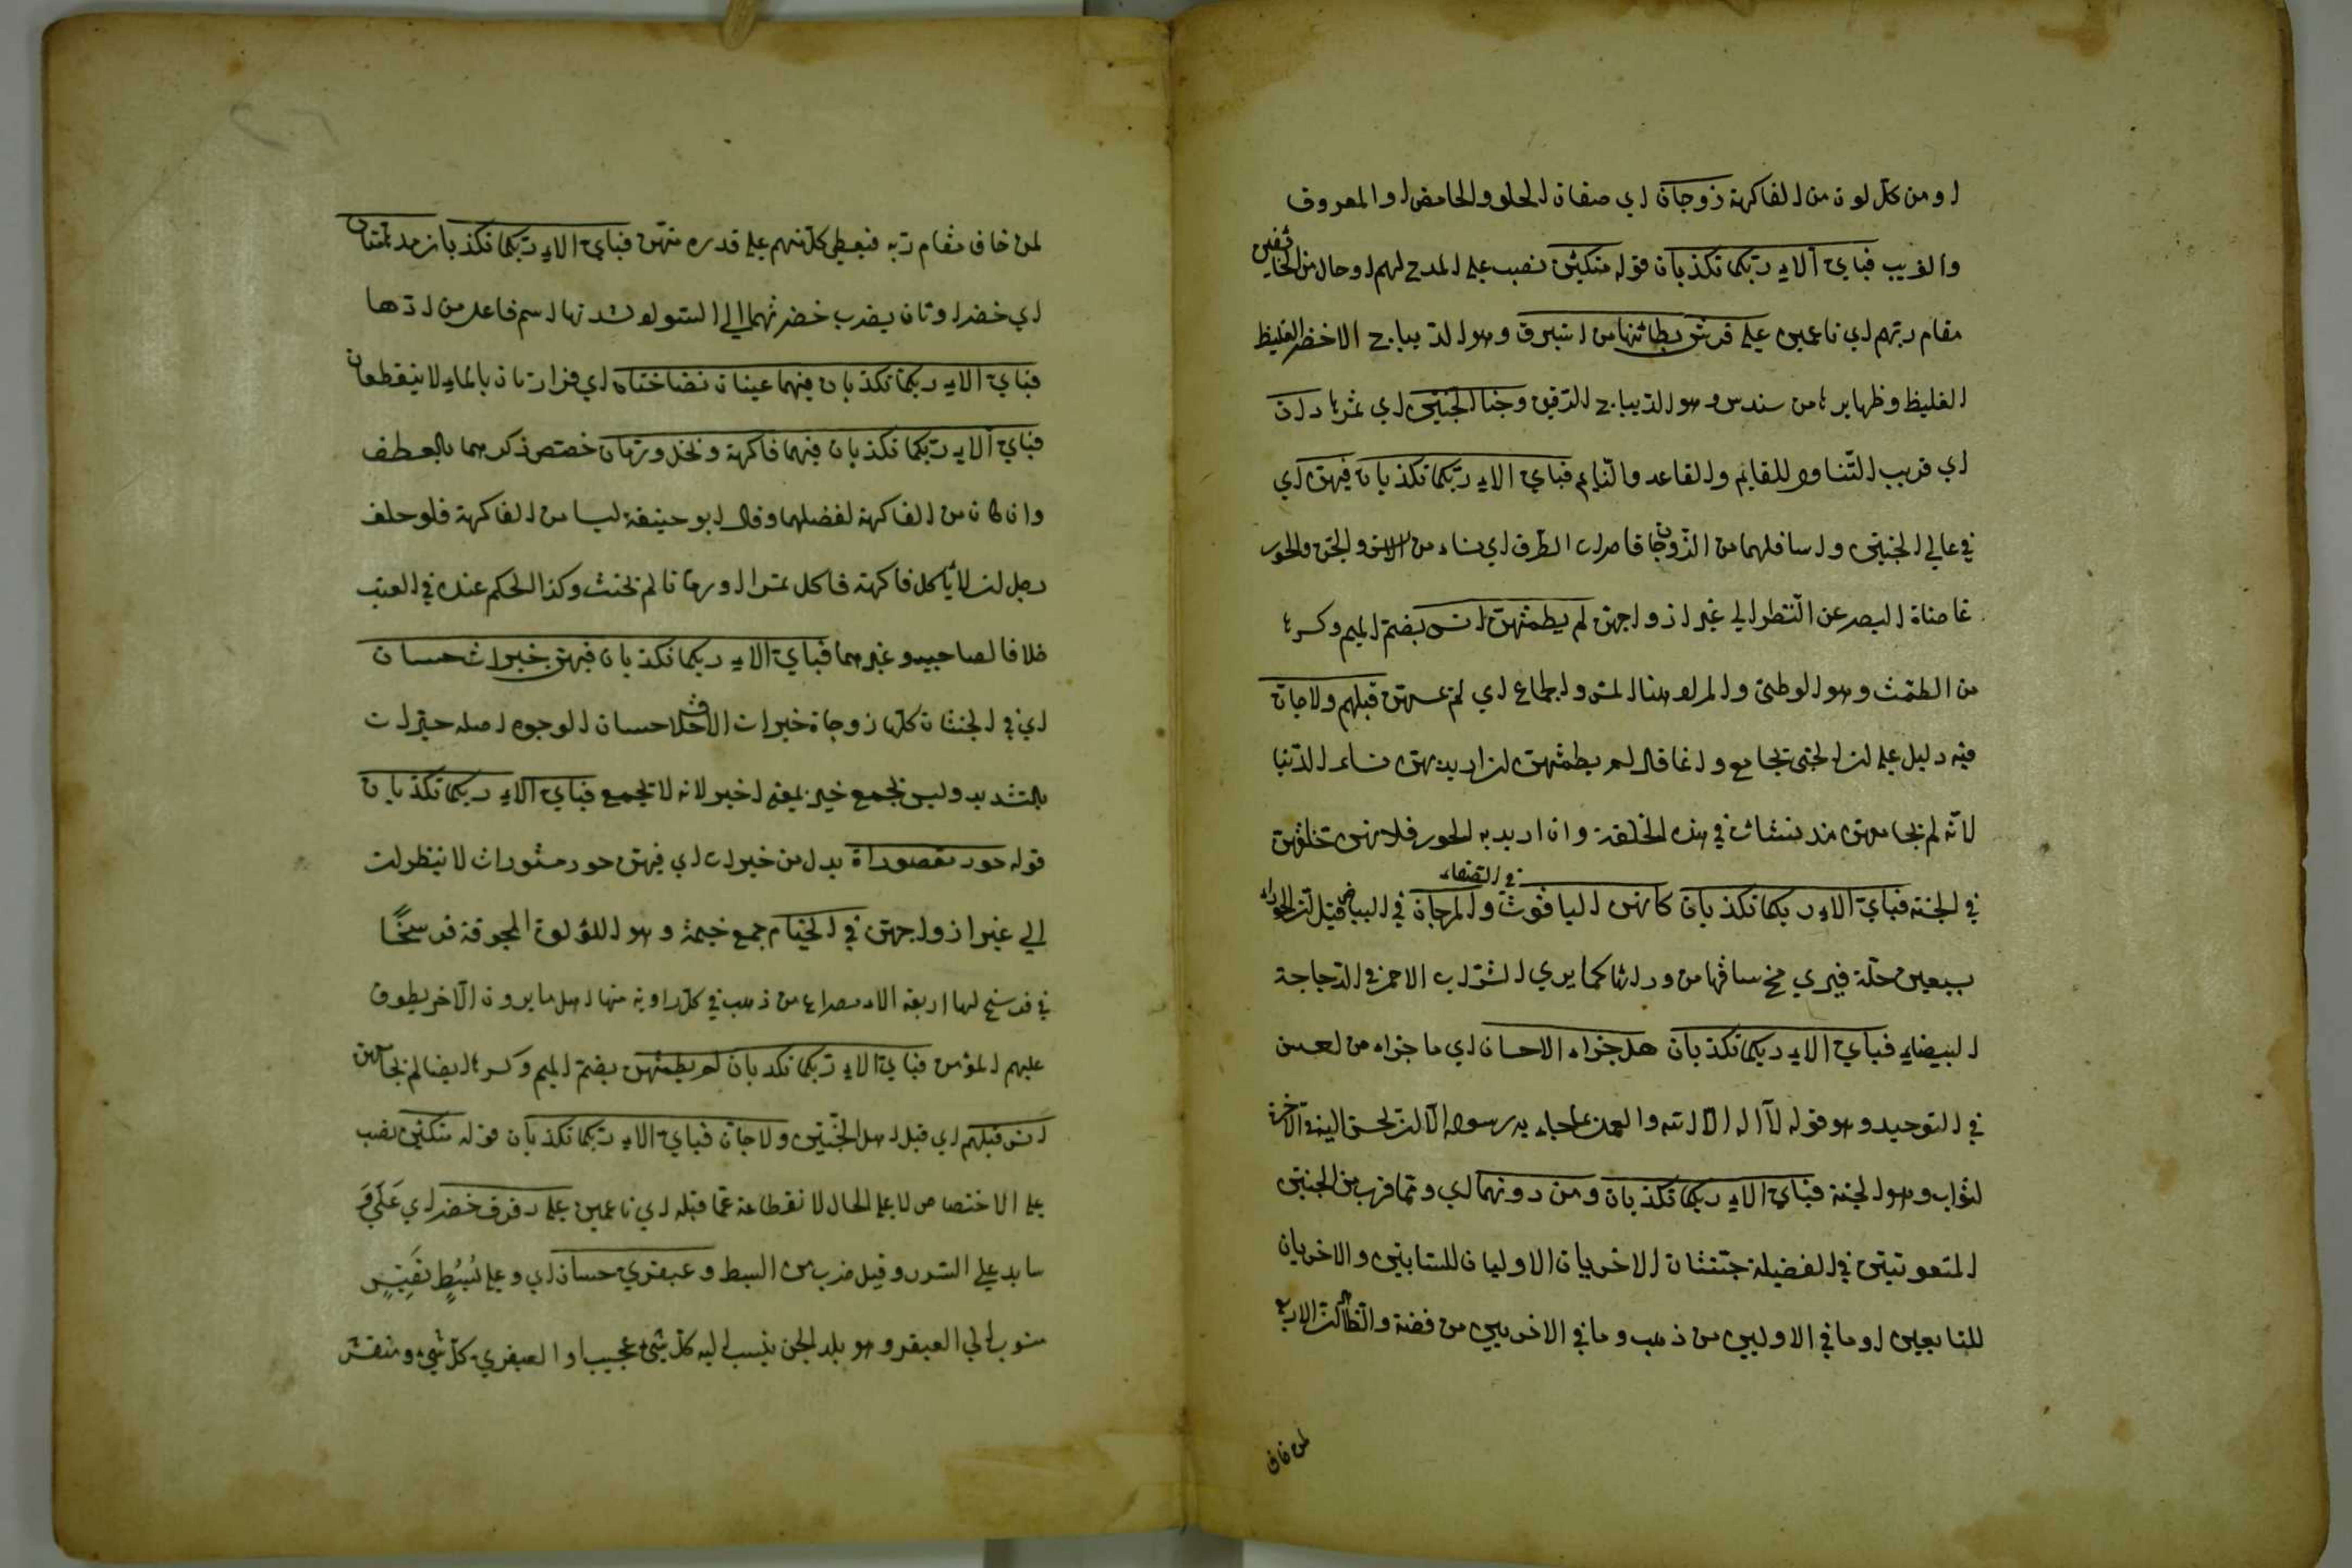 او من كل لون من الفاكهة زوجان اي صنفان الحلو والحامض او المعروف
والغريب فباي آلاء ربكما تكذبان قوله متكئين نصب علي المدح لهم او حال من الخائفين
مقام ربهم اي ناعمين علي فرش بطائنها من استبرق وهو الديباج الاخضر الغليظ
الغليظ وظهايرها من سندس وهو الديباج الرقيق وجنا الجنتين اي ثمرها دان
اي قريب التناول للقايم والقاعد والنايم فباي الاء ربكما تكذبان فيهن اي
في عالي الجنتين واسافلهما من الزوجات قاصرات الطرف اي نساء من الانس والجن والحور
غاضات البصر عن النظر الي غير ازواجهن لم يطمثهن انس بضم الميم وكسرها
من الطمث وهو الوطئ والمراد هنا المس والجماع اي لم يمسهن قبلهم ولا جان
فيه دليل علي ان الجني يجامع وانما قال لم يطمثهن ان اريد بهن نساء الدنيا
لانه لم يجامعهن منذ منشات في هذه الخلقة وان اريد به الحور فلانهن خلقهن
في الجنة فباي الاء ربكما تكذبان كانهن الياقوت في الصفاء والمرجان في البياض قيل ان الحوراء
بسبعين حلة فيري مخ ساقها من ورائها كما يري الشراب الاحمر في الزجاجة
البيضاء فباي الاء ربكما تكذبان هل جزاء الاحسان اي ما جزاء من احسن
في التوحيد وهو قوله لا اله الا الله والعمل بما جاء به رسوله الا ان يحسن اليه في الآخرة
الثواب وهو الجنة فباي الاء ربكما تكذبان ومن دونهما اي وما قرب من الجنتين
في الفضيلة جنتان الاخريان الاوليان للسابقين والاخريان
للتابعين او ما في الاوليين من ذهب وما في الاخريين من فضة والظاهر ان الاربع
لمن خاف
لمن خاف مقام ربه فيعطي كل منهم علي قدره منهن فباي الاء ربكما تكذبان مدهامتان
اي خضراوتان يضرب خضرتهما الي السواد لشدتها اسم فاعل من ادها
فباي الاء ربكما تكذبان فيهما عينان نضاختان اي فوارتان بالماء لا ينقطعان
فباي آلاء ربكما تكذبان فيهما فاكهة ونخل ورمان خصص ذكرهما بالعطف
وان كان من الفاكهة لفضلهما وقال ابو حنيفة ليسا من الفاكهة فلو حلف
رجل ان لا يأكل فاكهة فاكل تمرا او رمانا لم يحنث وكذا الحكم عنده في العنب
خلافا لصاحبيه وغيرهما فباي الاء ربكما تكذبان فيهن خيرات حسان
اي في الجنتان كلها زوجاة خيرات الاخلاق حسان الوجوه اصله خيرات
بالتشديد وليس بجمع خير بمعني اخير لانه لا يجمع فباي الاء ربكما تكذبان
قوله حور مقصوراة بدل من خيرات اي فيهن حور مستورات لا ينظرن
الي غير ازواجهن في الخيام جمع خيمة وهو اللؤلؤة المجوفة فرسخًا
في فرسخ لها اربعة الاف مصراع من ذهب في كل زاوية منها اهل ما يرون الآخر يطوف
عليهم المؤمن فباي الاء ربكما تكذبان لم يطمثهن بضم الميم وكسرها ايضا لم يجامعهن
انس قبلهم اي قبل اهل الجنتين ولا جان فباي الاء ربكما تكذبان قوله متكئين نصب
علي الاختصاص لا علي الحال لانقطاعة عما قبله اي ناعمين علي رفرف خضر اي
علي السرر وقيل ضرب من البسط وعبقري حسان اي وعلي بُسُطٍ نَفِيسٍ
منسوب الي العبقر وهو بلد الجن ينسب اليه كل شئ عجيب او العبقري كل شئ ومنقش